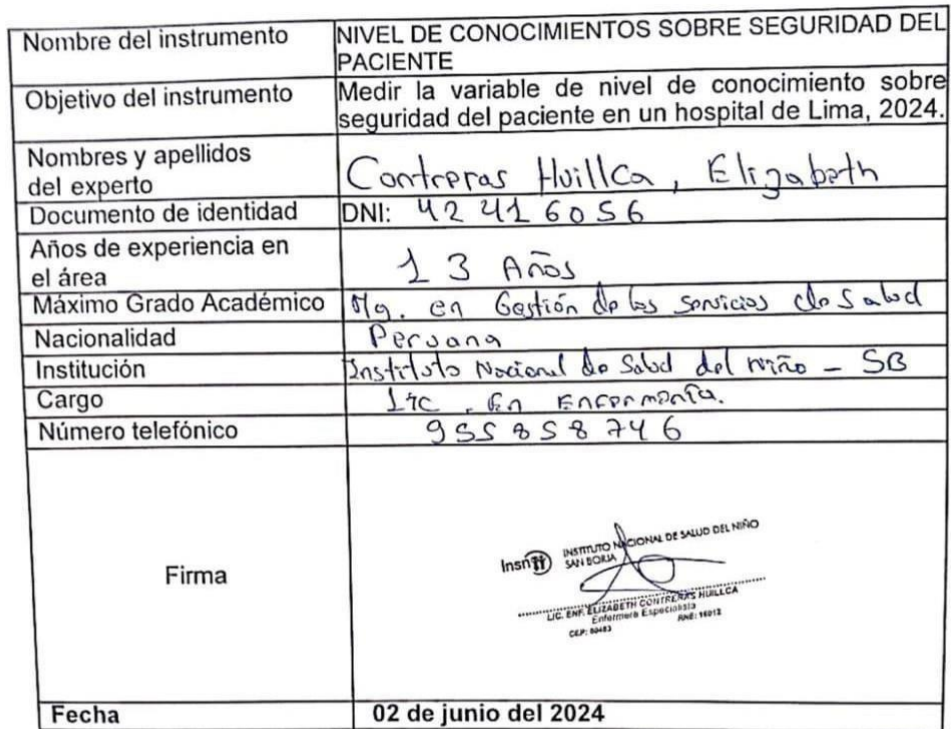 Nombre del instrumento
NIVEL DE CONOCIMIENTOS SOBRE SEGURIDAD DEL
PACIENTE
Objetivo del instrumento
Medir la variable de nivel de conocimiento sobre
seguridad del paciente en un hospital de Lima, 2024.
Nombres y apellidos
del experto
Contreras Huillca, Elizabeth
Documento de identidad
DNI: 42416056
Años de experiencia en
el área
13 Años
Máximo Grado Académico
Mg. en Gestión de los servicios de salud
Nacionalidad
Peruana
Institución
Instituto Nacional de Salud del niño - SB
Cargo
Lic. En Enfermería.
Número telefónico
955858746
Firma
Insn
INSTITUTO NACIONAL DE SALUD DEL NIÑO
SAN BORJA
LIC. ENF. ELIZABETH CONTRERAS HUILLCA
Enfermera Especialista
CEP: RNE:
Fecha
02 de junio del 2024